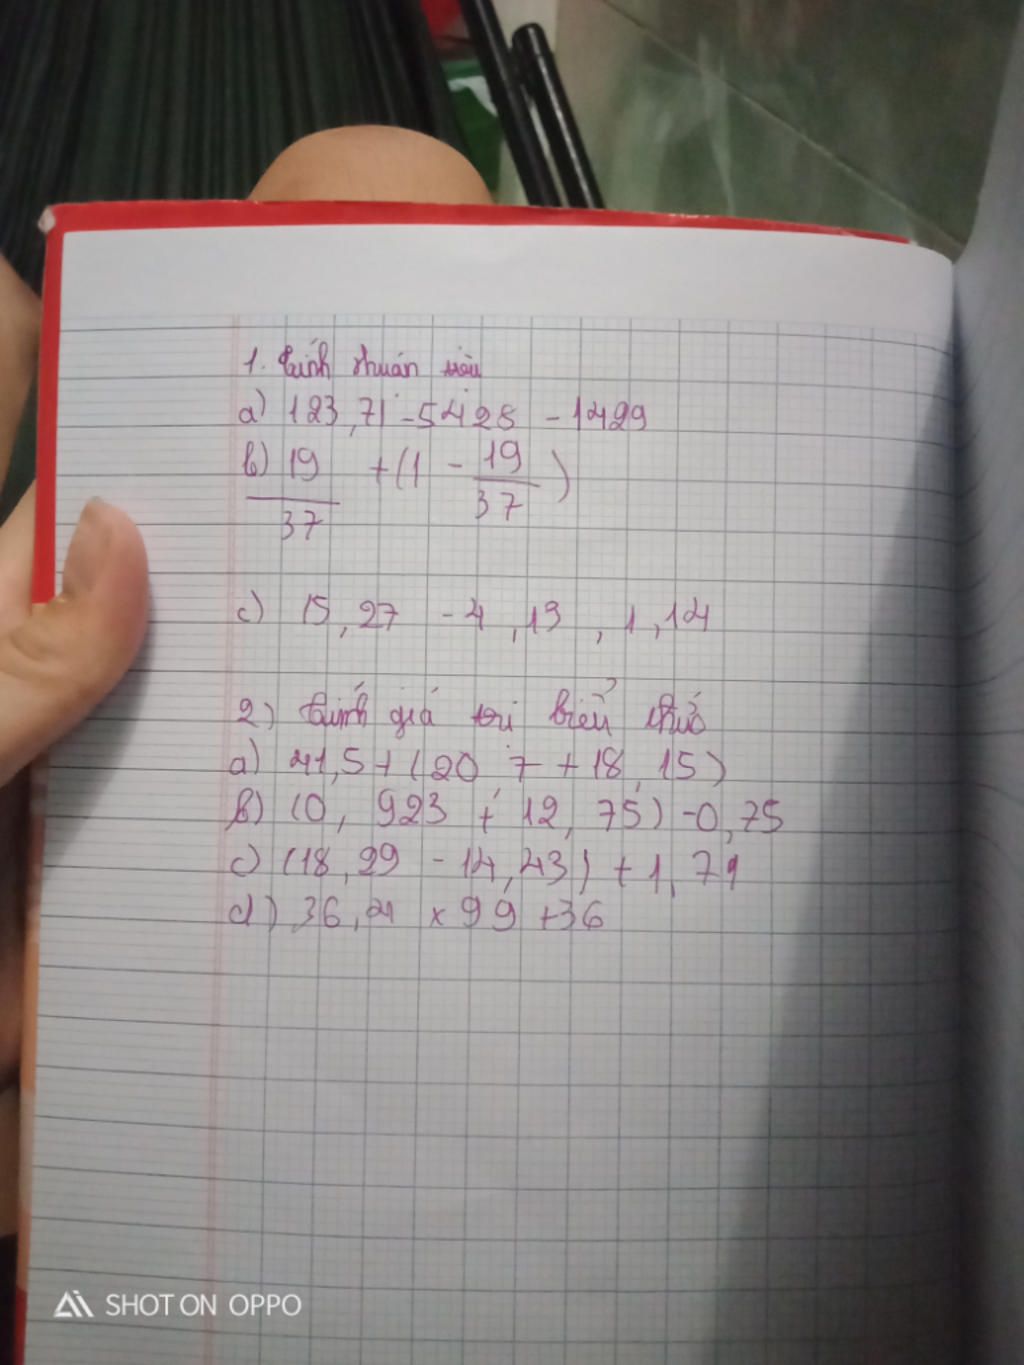 1. tính thuận tiện
a) 123,71 - 5428 - 1429
b) 19/37 + (1 - 19/37)
c) 15,27 - 4,13, 1,14
2) tính giá trị biểu thức
a) 41,5 + (20 7 + 18,15)
b) (0, 923 + 12, 75) - 0,75
c) (18,29 - 14,43) + 1,71
d) 36,21 x 99 + 36
SHOT ON OPPO